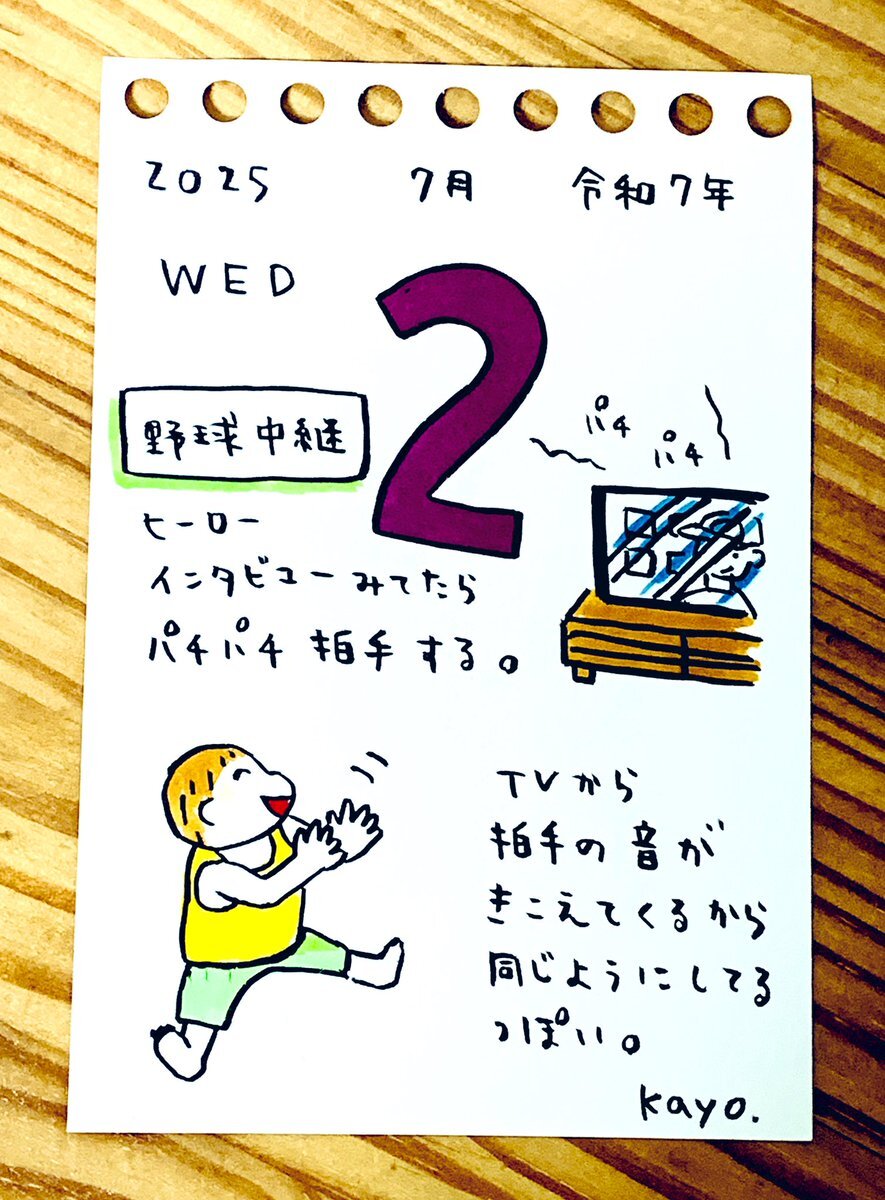 2025 7月 令和7年
WED
2
野球中継
パチ
パチ
ヒーロー
インタビューみてたら
パチパチ拍手する。
TVから
拍手の音が
きこえてくるから
同じようにしてる
っぽい。
kayo.